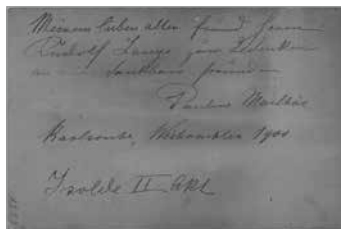 Meinem lieben alten Freund Herrn
Rudolf Lange zum Andenken
Pauline Mailhac
Karlsruhe, Weihnachten 1900
Isolde II Akt